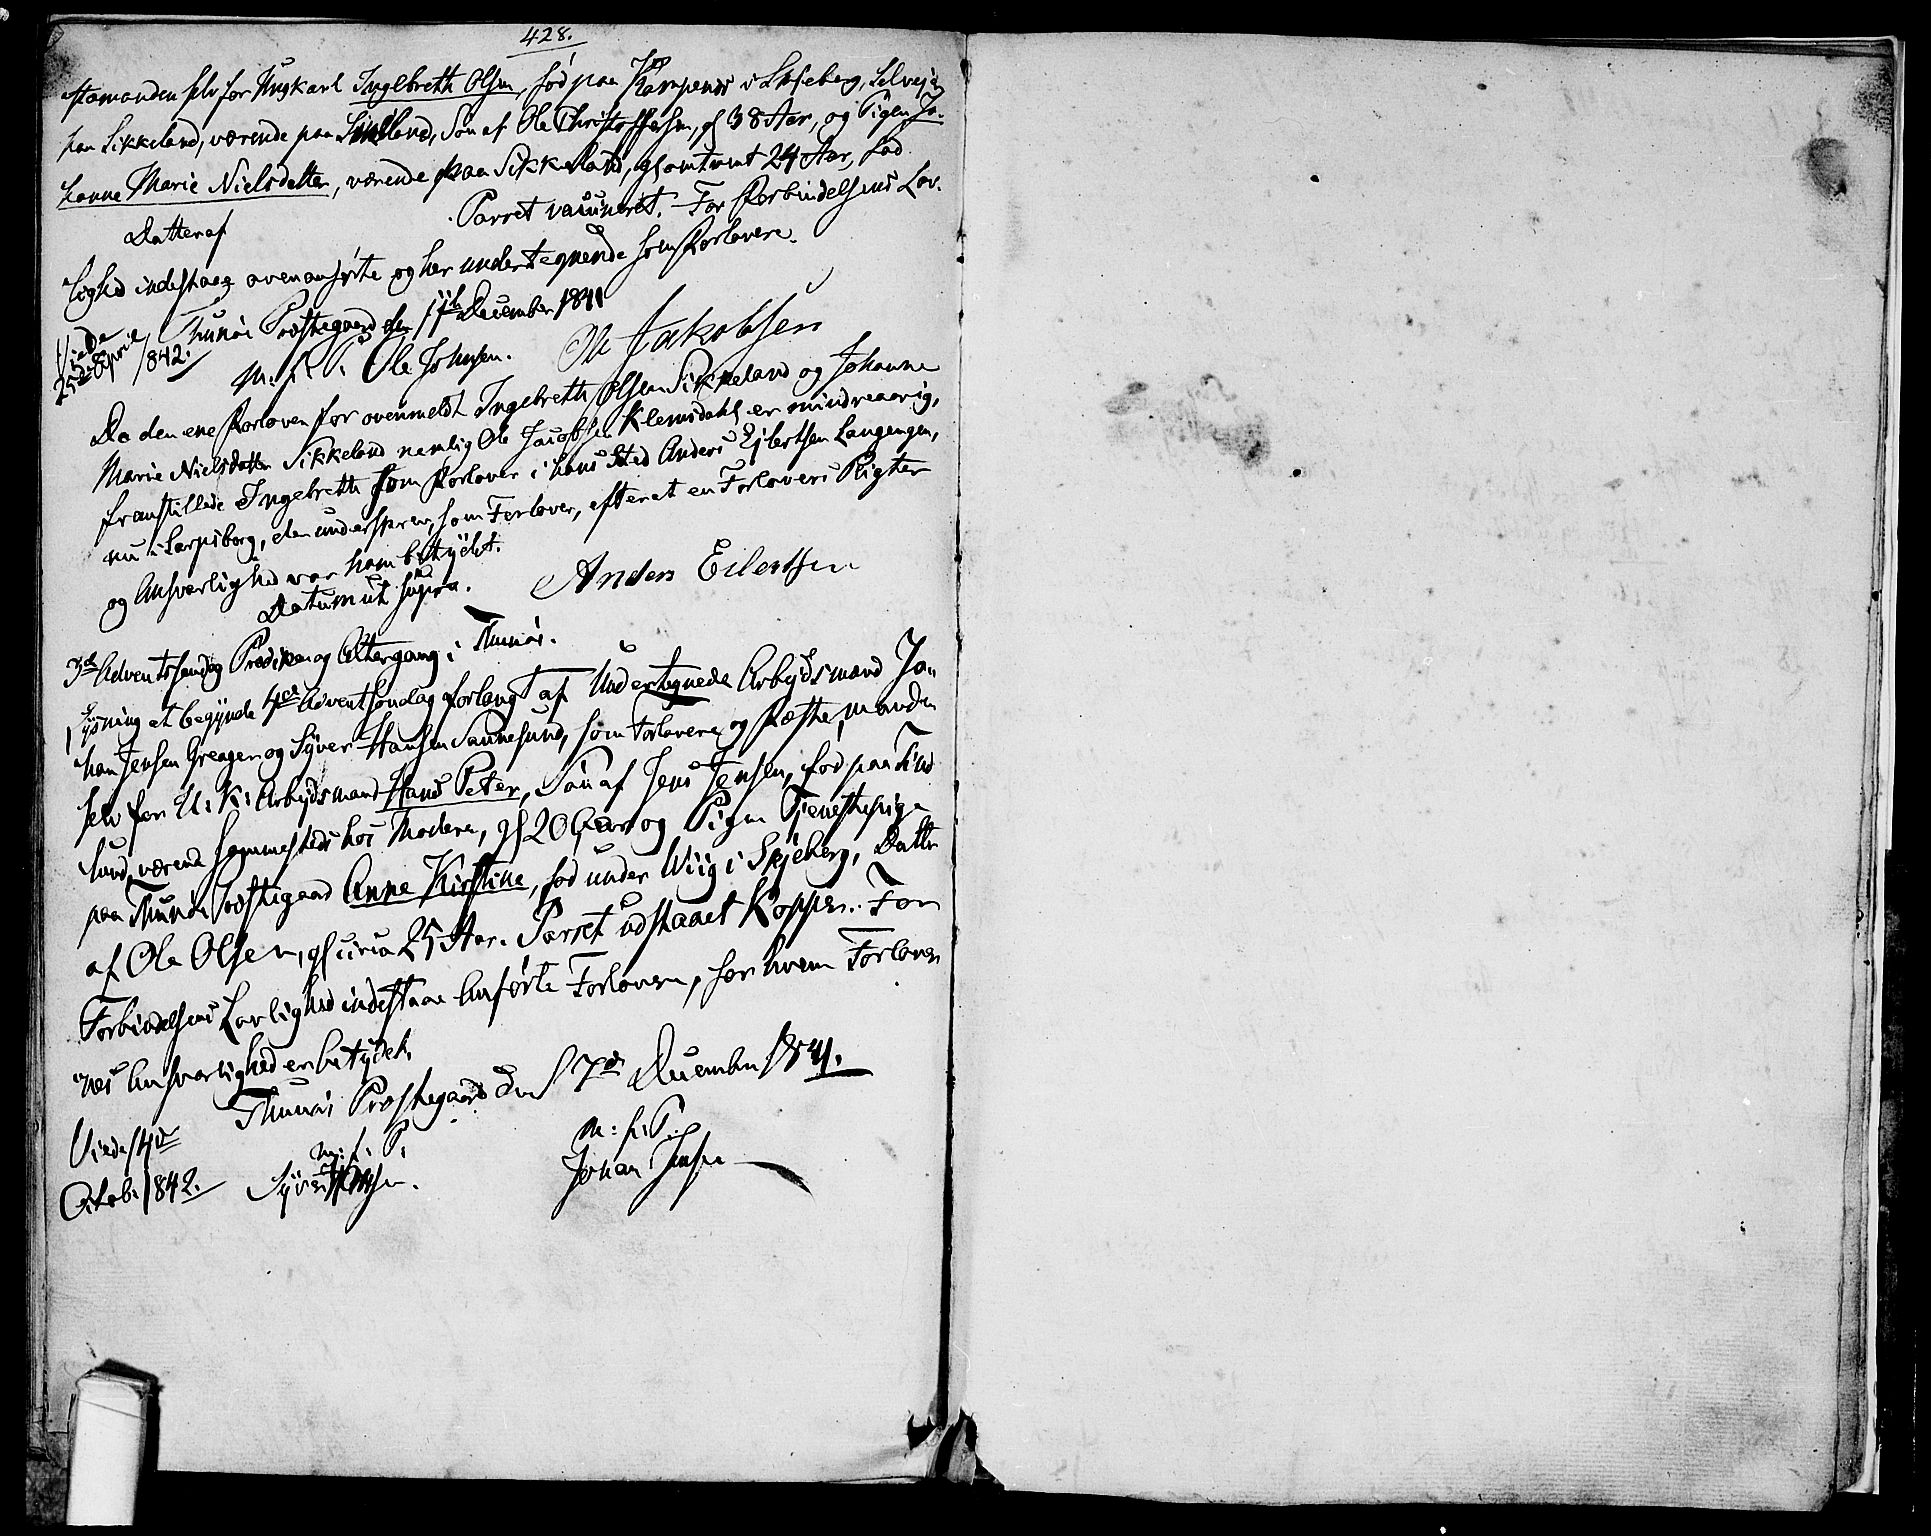 428.
stemanden selv for Ungkarl Ingelbreth Olsen, fød paa Kampenes i Skjeberg, Selvejer
paa Sikkeland, værende paa Sikkeland, Søn af Ole Christophersen, gl 38 Aar, og Pigen Jo-
hanne Marie Nielsdatter, værende paa Sikkeland, gl omtrent 24 Aar, fød
Datter af Parret vaccineret. For Forbindelsens Lov-
lighed indestaae ovenanførte og her undertegnende som Forlovere.
Thunøe Præstegaard den 11te December 1841
Viede
25de April 1842.
m. f. P. Ole Johnsen. Ole Jakobsen
Da den ene Forlover for ovenmeldt Ingebreth Olsen Sikkeland og Johanne
Marie Nielsdatter Sikkeland nemlig Ole Jacobsen Klemsdahl er mindreaarig,
fremstillede Ingebreth som Forlover i hans Sted Anders Ejlertsen Langengen,
nu i Sarpsborg, der underskrev, som Forlover, efterat en Forlovers Pligter
og Ansvarlighed var ham betydet.
Datum ut supra. Anders Eilertsen
3d Adventssøndag Prædiken og Altergang i Thunøe.
Lysning at begynde 4de Adventsøndag forlangt af Undertegnede Arbejdsmand Jo-
han Jensen Greager og Syver Hansen Sannesund, som Forlovere og Fæstemanden
selv for U: K: Arbejdsmand Hans Peter, Søn af Jens Jensen, fød paa Sand
sund, værende sammesteds hos Modern, gl 20 Aar og Pigen Tjenestepige
paa Thunøe Præstegaard Anne Kirstine, fød under Wiig i Skjeberg, Datter
af Ole Olsen, gl circa 25 Aar. Parret udstaaet Kopper. For
Forbindelsens Lovlighed indestaae Anførte Forlovere, for hvem Forlover
nes Ansvarlighed er betydet.
Thunøe Præstegaard den 17d December 1841.
Viede 14de
Octob. 1842.
m: f: P: m: f: P:
Syver Hansen. Johan Jensen